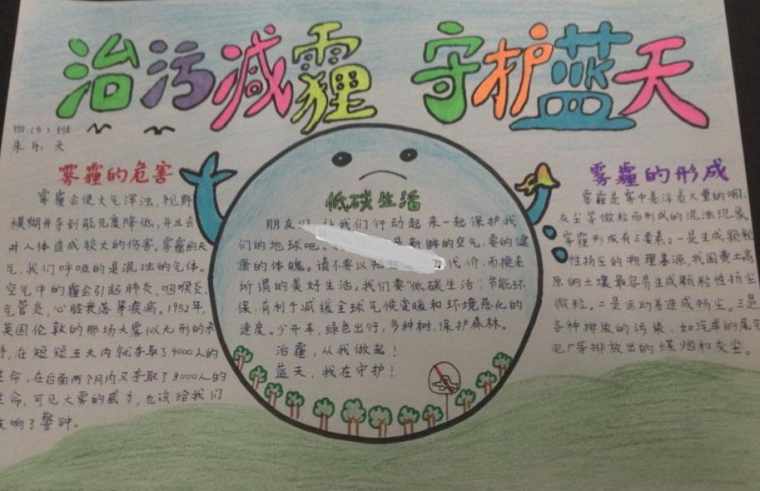 治污减霾 守护蓝天
四(5)班
朱乐天
雾霾的危害
雾霾会使大气浑浊,视野
模糊并导致能见度降低,并且会
对人体造成较大的伤害,雾霾的天
气,我们呼吸的是混浊的气体。
空气中的霾会引起肺炎、咽喉炎、
气管炎、心脏衰落等疾病。1952年,
英国伦敦的那场大雾以无形的杀
手,在短短五天内就夺取了4000人的
生命,在后面两个月内又夺取了8000人的
生命,可见大雾的威力,也该给我们
敲响了警钟。
低碳生活
朋友们,让我们行动起来一起保护我
们的地球吧。是新鲜的空气,要的健
康的体魄。请不要以代价,而换来
所谓的美好生活。我们要"低碳生活:节能环
保,有利于减缓全球气候变暖和环境恶化的
速度。少开车,绿色出行,多种树,保护森林。
治霾,从我做起!
蓝天,我在守护!
雾霾的形成
雾霾是雾中悬浮着大量的烟、
灰尘等微粒而形成的混浊现象。
雾霾形成有三要素:一是生成颗粒
性扬尘的物理基源,我国黄土高
原的土壤最容易生成颗粒性扬尘
微粒。二是运动差造成扬尘。三是
各种排放的污染,如汽车的尾气
电厂等排放出的煤烟和灰尘。